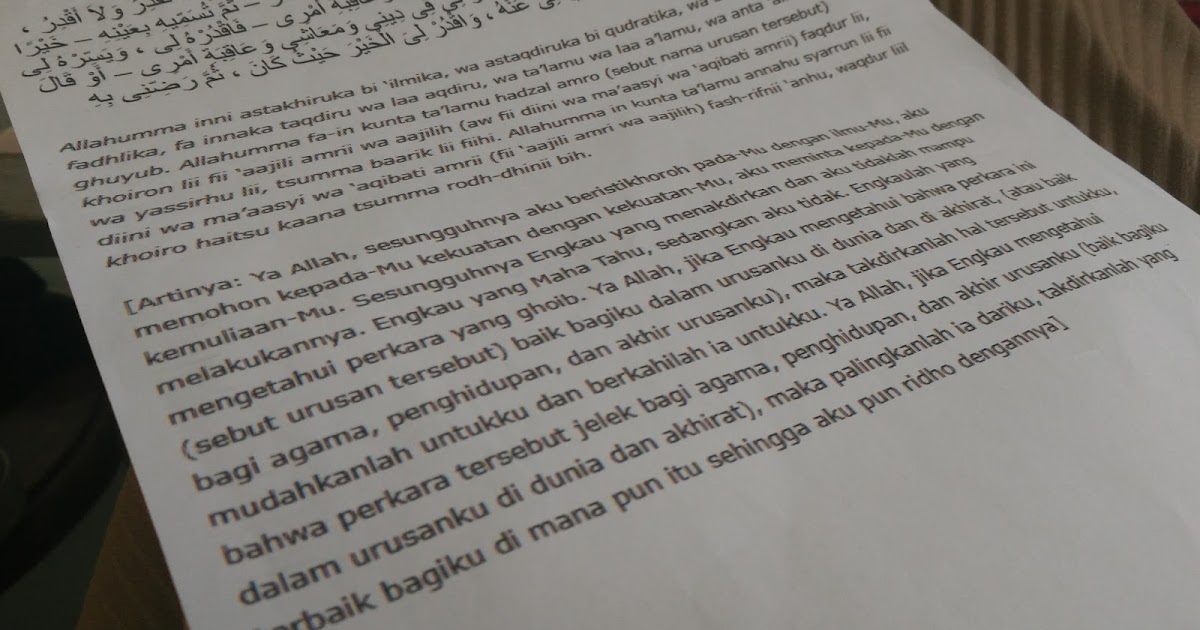 وَلاَ أَقْدِرُ ،
عَاقِبَةِ أَمْرِى – ثُمَّ تُسَمِّيهِ بِعَيْنِهِ – خَيْرًا
فِى دِينِى وَمَعَاشِى وَعَاقِبَةِ أَمْرِى – فَاقْدُرْهُ لِى ، وَيَسِّرْهُ لِى
عَنْهُ ، وَاقْدُرْ لِىَ الْخَيْرَ حَيْثُ كَانَ ، ثُمَّ رَضِّنِى بِهِ – أَوْ قَالَ
Allahumma inni astakhiruka bi 'ilmika, wa astaqdiruka bi qudratika, wa
fadhlika, fa innaka taqdiru wa laa aqdiru, wa ta'lamu wa laa a'lamu, wa anta
ghuyub. Allahumma fa-in kunta ta'lamu hadzal amro (sebut nama urusan tersebut)
khoiron lii fii 'aajili amrii wa aajilih (aw fii diini wa ma'aasyi wa 'aqibati amrii) faqdur lii,
wa yassirhu lii, tsumma baarik lii fiihi. Allahumma in kunta ta'lamu annahu syarrun lii fii
diini wa ma'aasyi wa 'aqibati amrii (fii 'aajili amri wa aajilih) fash-rifnii 'anhu, waqdur liil
khoiro haitsu kaana tsumma rodh-dhinii bih.
[Artinya: Ya Allah, sesungguhnya aku beristikhoroh pada-Mu dengan ilmu-Mu, aku
memohon kepada-Mu kekuatan dengan kekuatan-Mu, aku meminta kepada-Mu dengan
kemuliaan-Mu. Sesungguhnya Engkau yang menakdirkan dan aku tidaklah mampu
melakukannya. Engkau yang Maha Tahu, sedangkan aku tidak. Engkaulah yang
mengetahui perkara yang ghoib. Ya Allah, jika Engkau mengetahui bahwa perkara ini
(sebut urusan tersebut) baik bagiku dalam urusanku di dunia dan di akhirat, (atau baik
bagi agama, penghidupan, dan akhir urusanku), maka takdirkanlah hal tersebut untukku,
mudahkanlah untukku dan berkahilah ia untukku. Ya Allah, jika Engkau mengetahui
bahwa perkara tersebut jelek bagi agama, penghidupan, dan akhir urusanku (baik bagiku
dalam urusanku di dunia dan akhirat), maka palingkanlah ia dariku, takdirkanlah yang
terbaik bagiku di mana pun itu sehingga aku pun ridho dengannya]